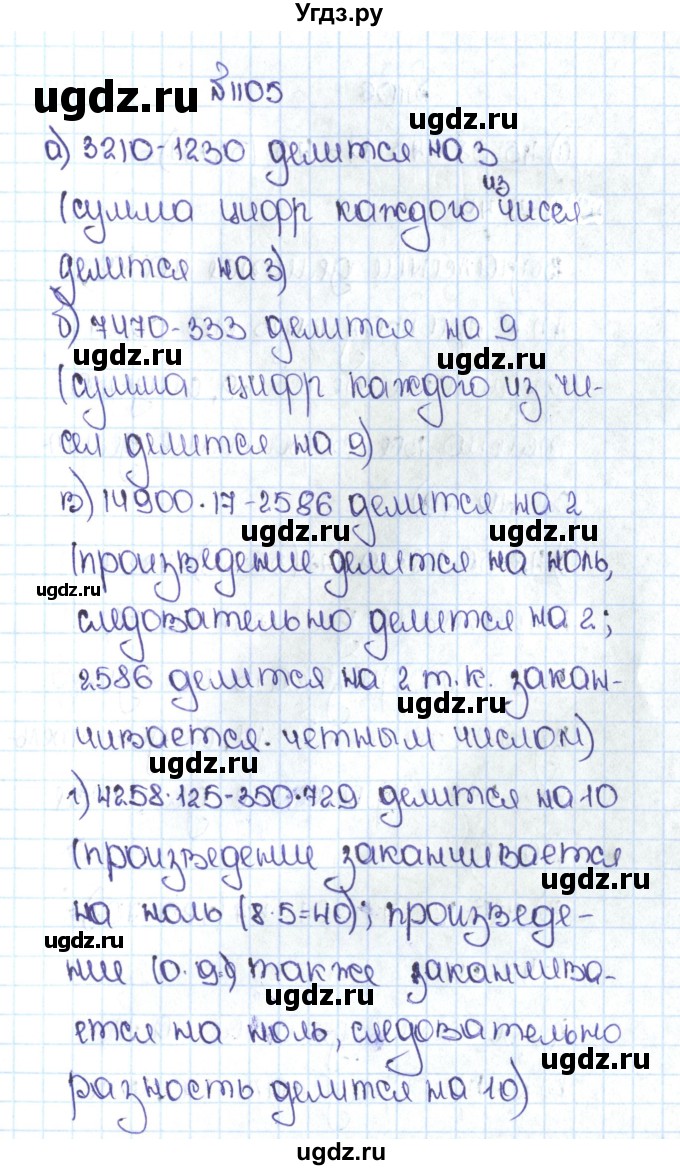 Угдз.ру
№1105
ugdz.ru
ugdz.ru
а) 3210-1230 делится на 3
из
(сумма цифр каждого чисел
делится на 3)
б) 7470-333 делится на 9
ugdz.ru
ugdz.ru
(сумма цифр каждого из чи-
сел делится на 9)
в) 14900·17-2586 делится на 2
ugdz.ru
ugdz.ru
(произведение делится на ноль,
ugdz.ru
следовательно делится на 2;
2586 делится на 2 т.к. закан-
ugdz.ru
чивается четным числом)
ugdz.ru
г) 4258·125-350·729 делится на 10
(произведение заканчивается
ugdz.ru
на ноль (8·5=40); произведе-
ugdz.ru
ние (0·9) также заканчива-
ugdz.ru
ется на ноль, следовательно
ugdz.ru
разность делится на 10)
ugdz.ru